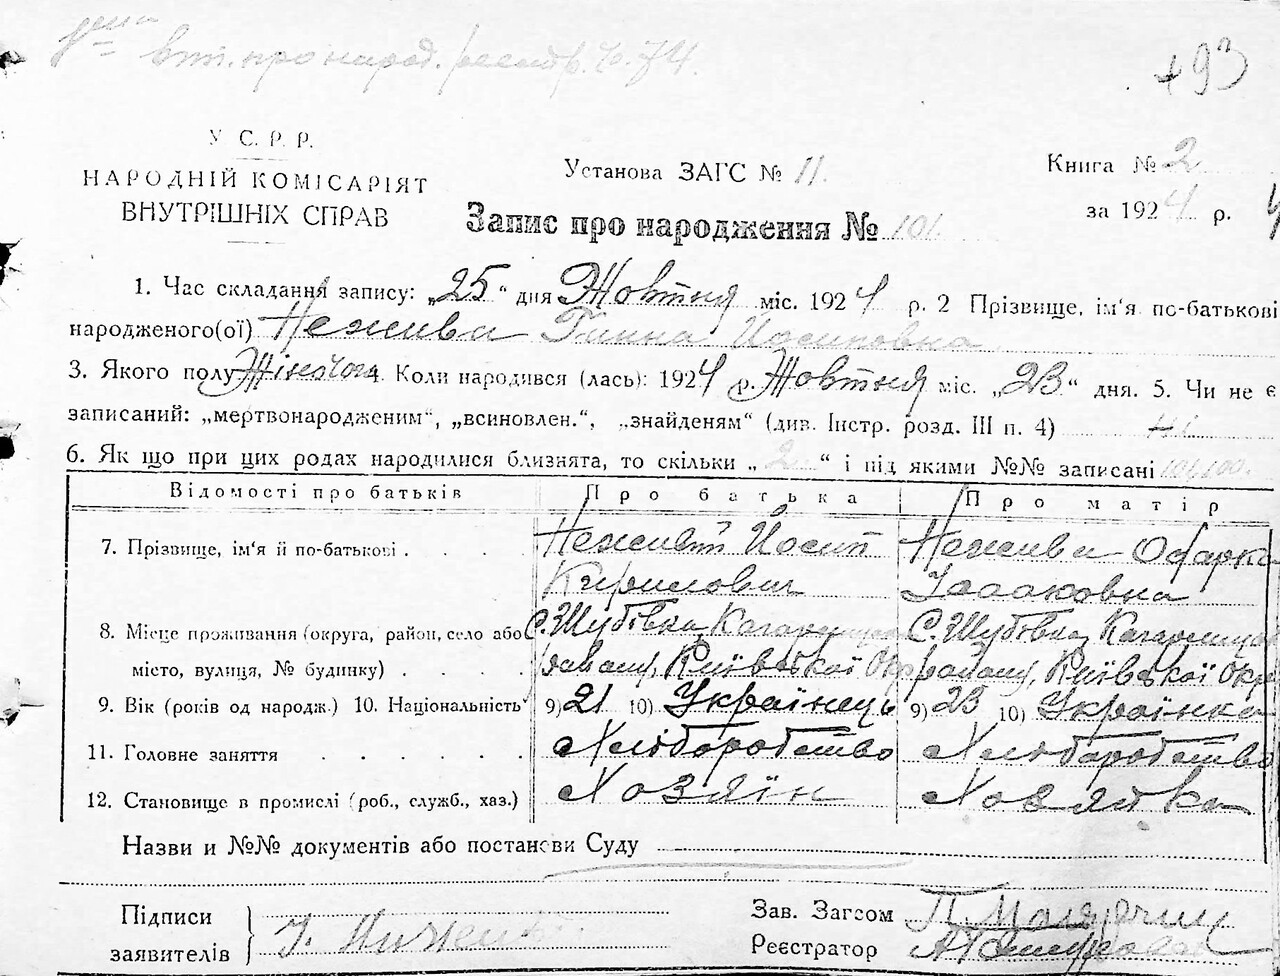 втп. про народ. реєстр. ч. 74.
+93
У С. Р. Р.
НАРОДНІЙ КОМІСАРІЯТ
ВНУТРІШНІХ СПРАВ
Установа ЗАГС № 11.
Книга № 2
за 1924 р.
Запис про народження № 101.
1. Час складання запису: „25“ дня Жовтня міс. 1924 р. 2 Прізвище, ім'я по-батькові
народженого(ої) Нежива Ганна Йосиповна
3. Якого полу Жіночого 4. Коли народився (лась): 1924 р. Жовтня міс. „23“ дня. 5. Чи не є
записаний: „мертвонародженим“, „всиновлен.“, „знайденям“ (див. Інстр. розд. III п. 4) Ні
6. Як що при цих родах народилися близнята, то скільки „2“ і під якими №№ записані 101, 100.
Відомості про батьків Про батька Про матір
7. Прізвище, ім'я й по-батькові . . . . Неживий Йосип Кирилович Нежива Одарка Ісааковна
8. Місце проживання (округа, район, село або місто, вулиця, № будинку) . . . . С. Шубівка, Кагарлицьк. району, Київської Окр С. Шубівка, Кагарлицьк. району, Київської Окр
9. Вік (років од народж.) 10. Національність 9) 21 10) Українець 9) 23 10) Українка
11. Головне заняття . . . . . . Хліборобство Хліборобство
12. Становище в промислі (роб., служб., хаз.) Хозяїн Хозяйка
Назви и №№ документів або постанови Суду
Підписи
заявителів
Зав. Загсом
Реєстратор